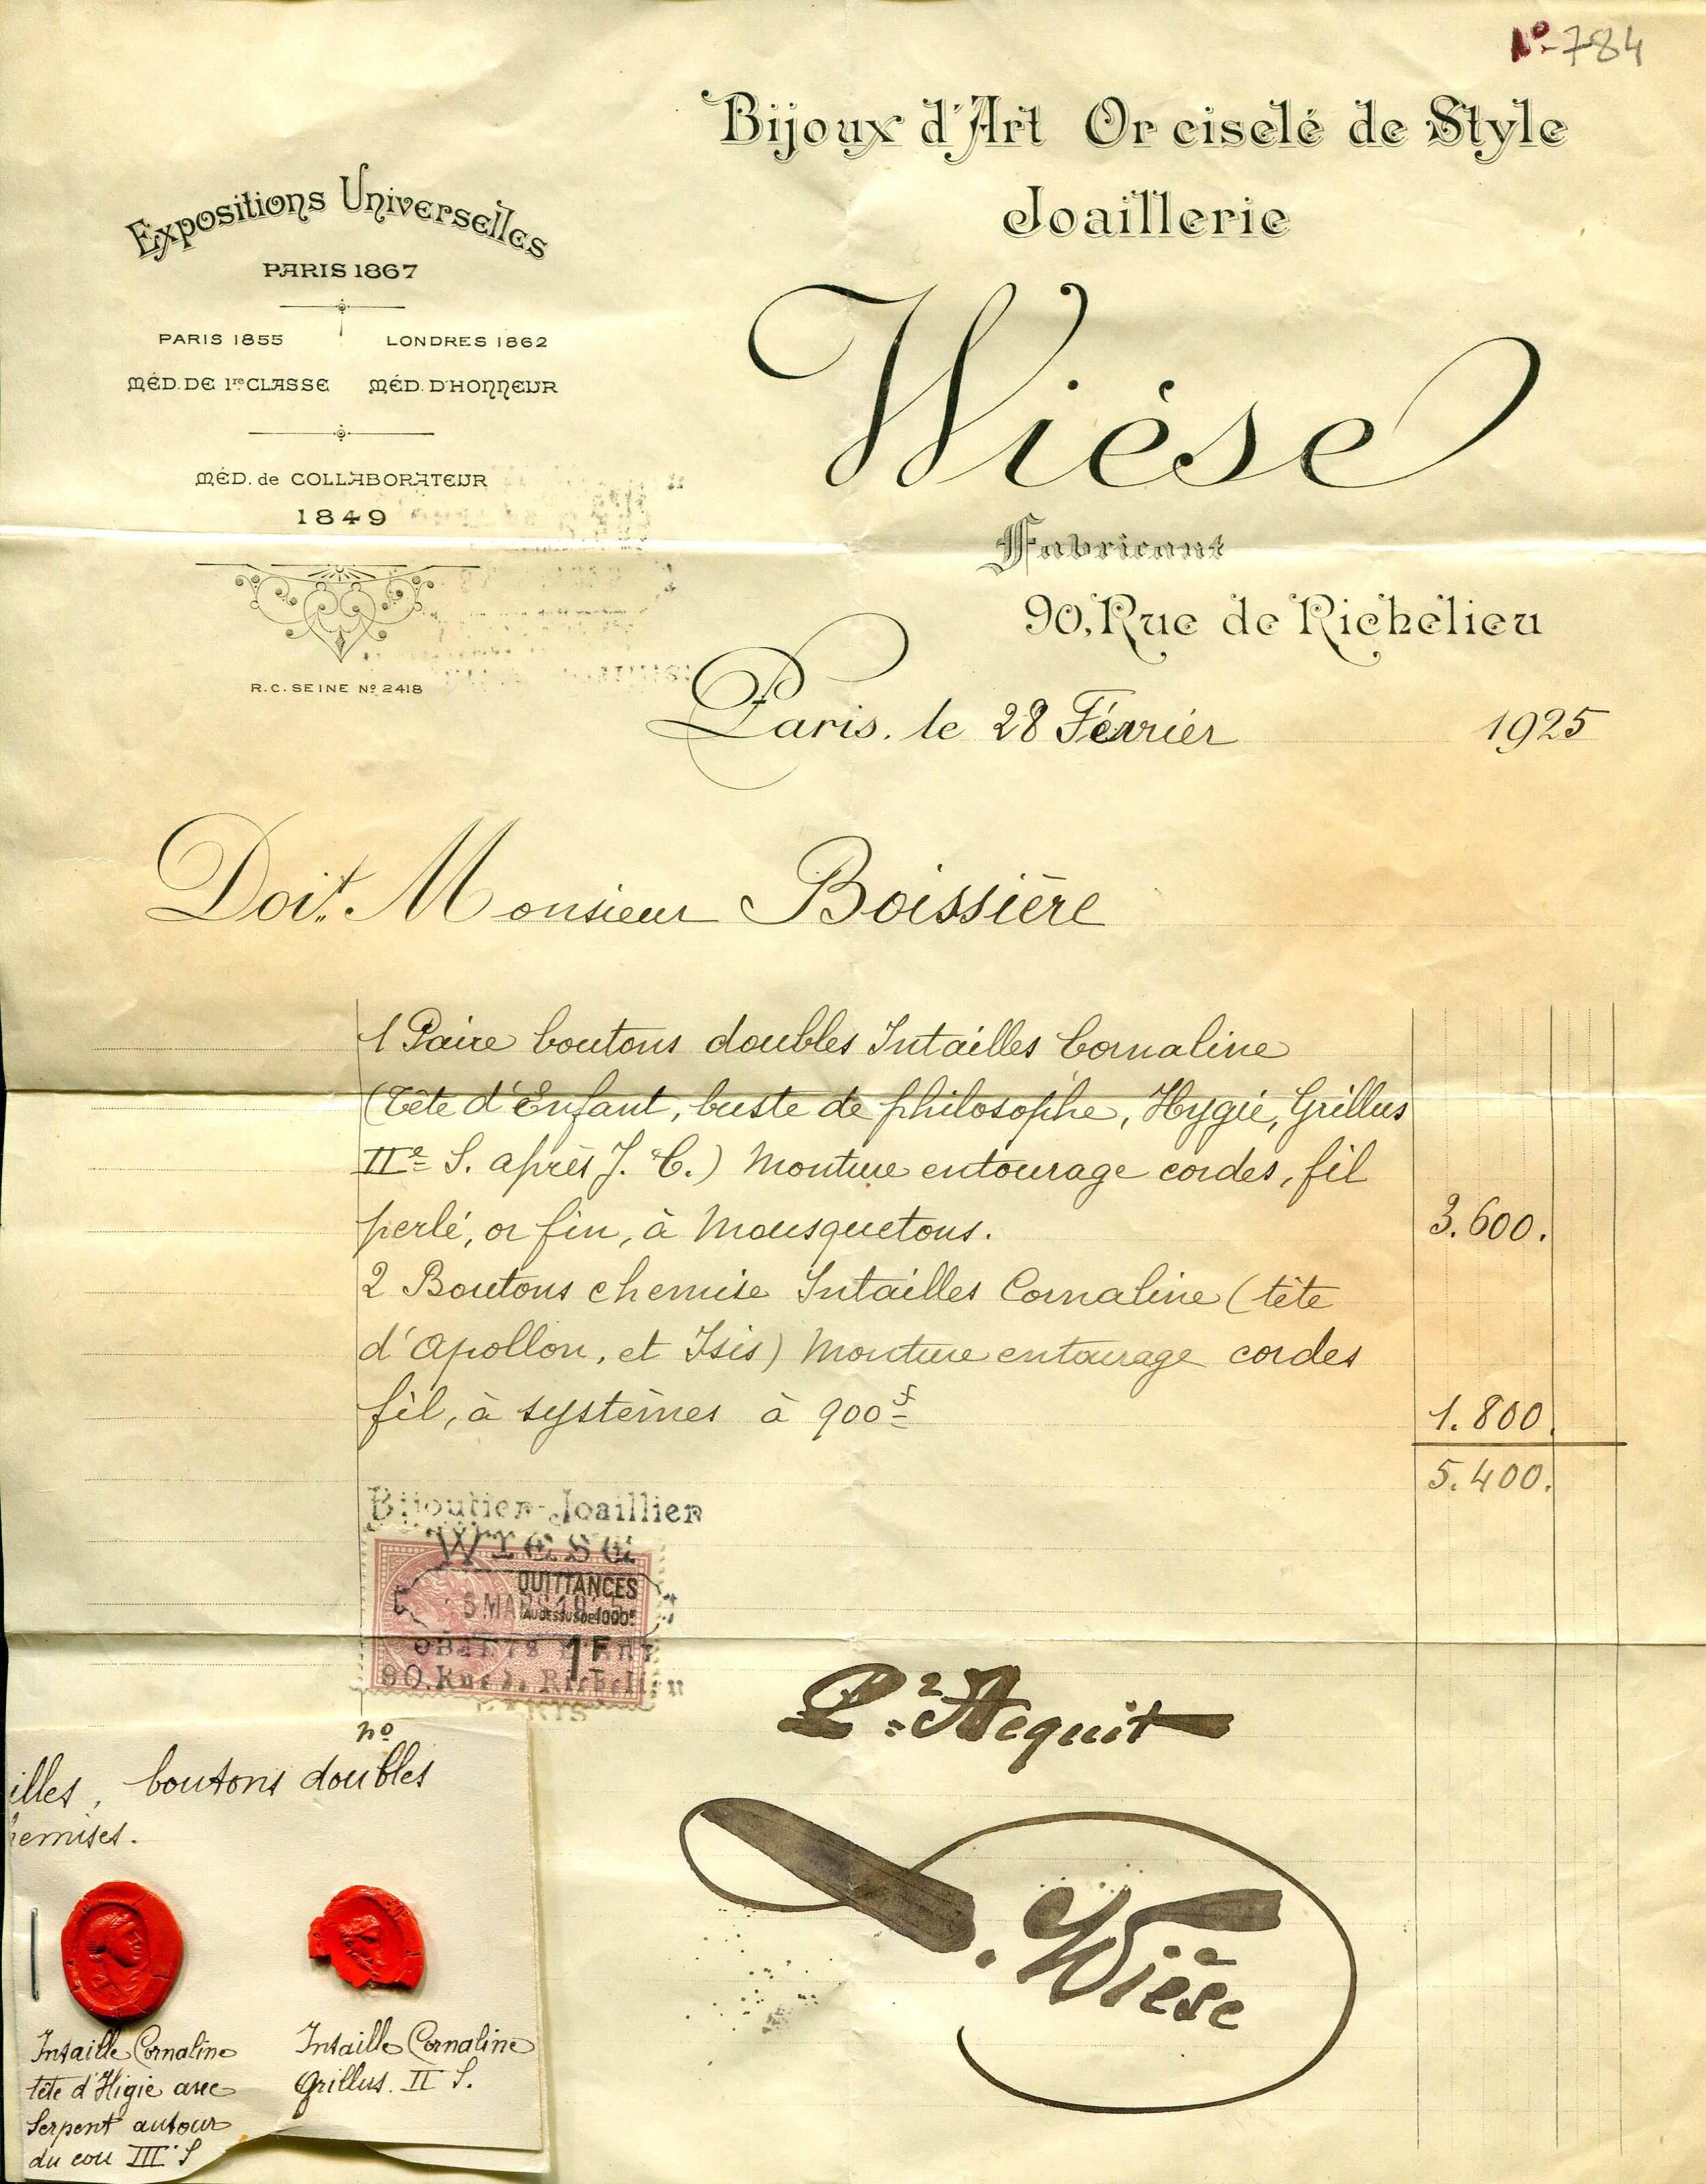 No 784
Bijoux d'Art Or ciselé de Style
Joaillerie
Expositions Universelles
PARIS 1867
PARIS 1855 LONDRES 1862
MÉD. DE 1re CLASSE MÉD. D'HONNEUR
MÉD. de COLLABORATEUR
1849
R.C. SEINE No 2418
Wièse
Fabricant
90, Rue de Richelieu
Paris, le 28 Février 1925
Doit Monsieur Boissière
1 Paire boutons doubles Intailles Cornaline
(Tête d'Enfant, buste de philosophe, Hygie, Grillus
IIe S. après J. C.) Monture entourage cordes, fil
perlé, or fin, à Mousquetons. 3.600.
2 Boutons chemise Intailles Cornaline (tête
d'Apollon, et Isis) Monture entourage cordes
fil, à systèmes à 900f 1.800.
5.400.
Bijoutier-Joaillier
WIESE
QUITTANCES
AU DESSUS DE 1000F
5 MARS 19
1F
90, Rue de Richelieu
PARIS
Pr Acquit
Wièse
no
illes, boutons doubles
emises.
Intaille Cornaline
tête d'Higie avec
Serpent autour
du cou III S
Intaille Cornaline
Grillus. II S.